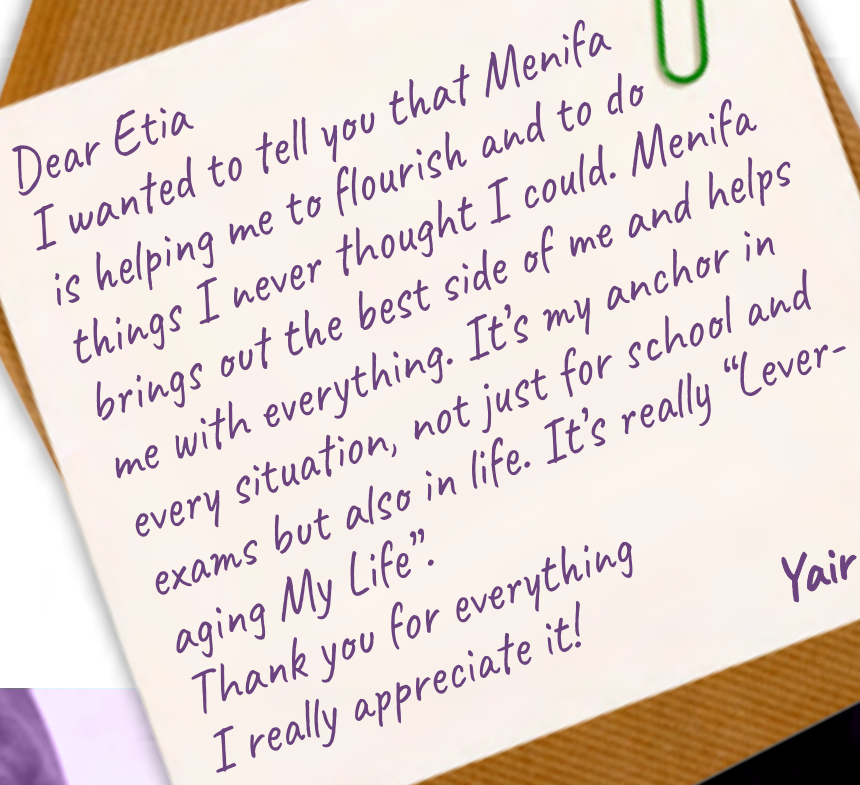 Dear Etia
I wanted to tell you that Menifa
is helping me to flourish and to do
things I never thought I could. Menifa
brings out the best side of me and helps
me with everything. It's my anchor in
every situation, not just for school and
exams but also in life. It's really “Lever-
aging My Life”.
Thank you for everything
I really appreciate it!
Yair